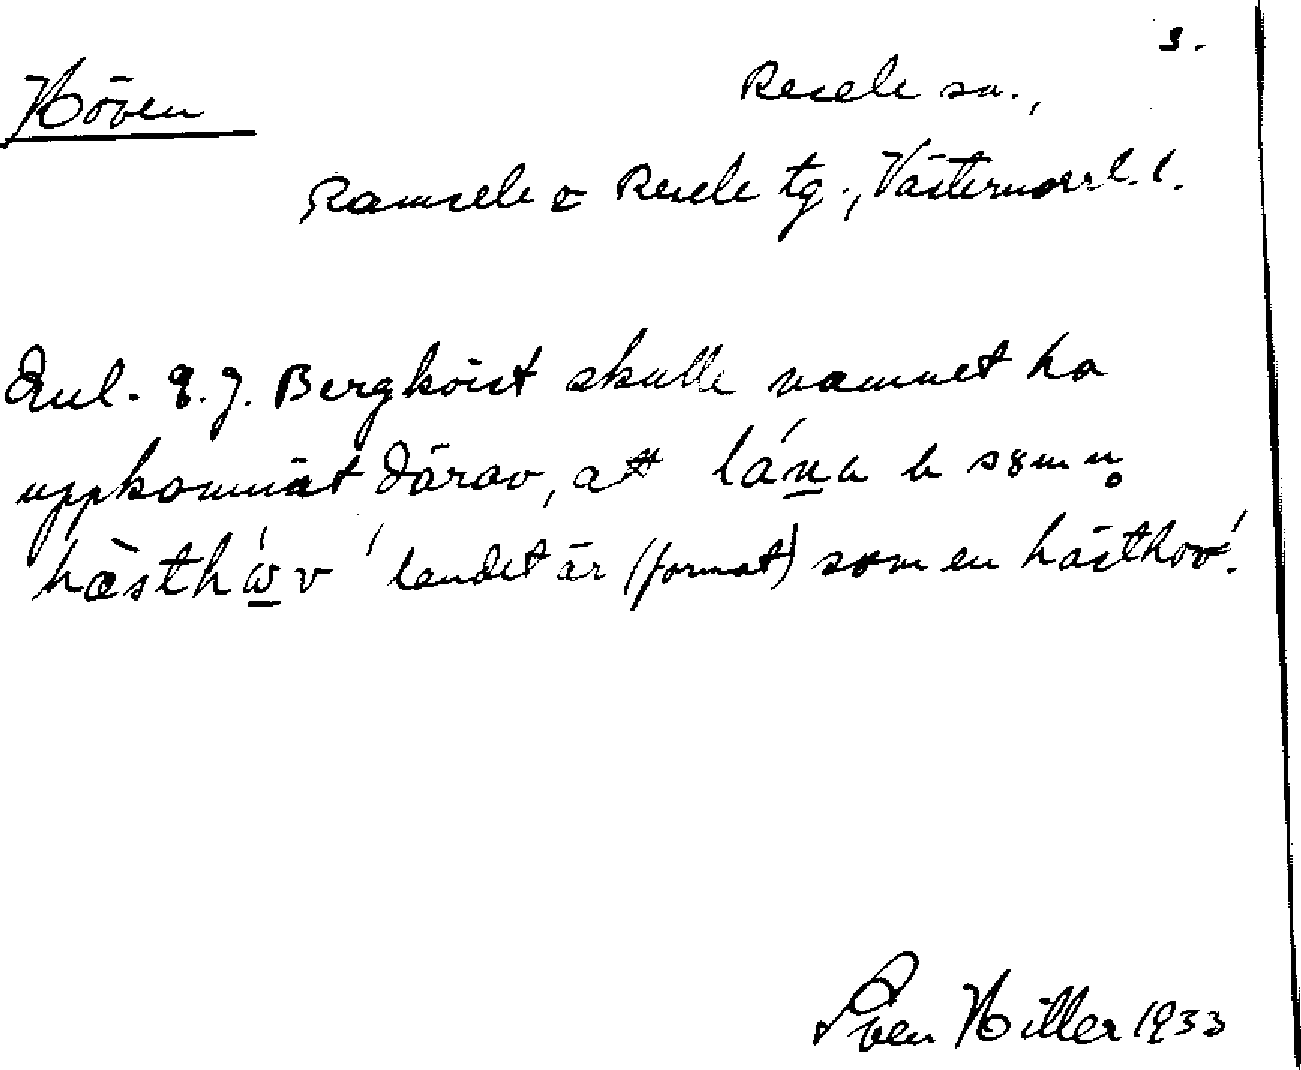 3.
Höven
Resele sn.,
Ramsele o Resele tg., Västernorrl. l.
Enl. E. J. Bergkvist skulle namnet ha
uppkommit därav, att
hæsth v 'landet är (format) som en hästhov'.
Sven Hiller 1933